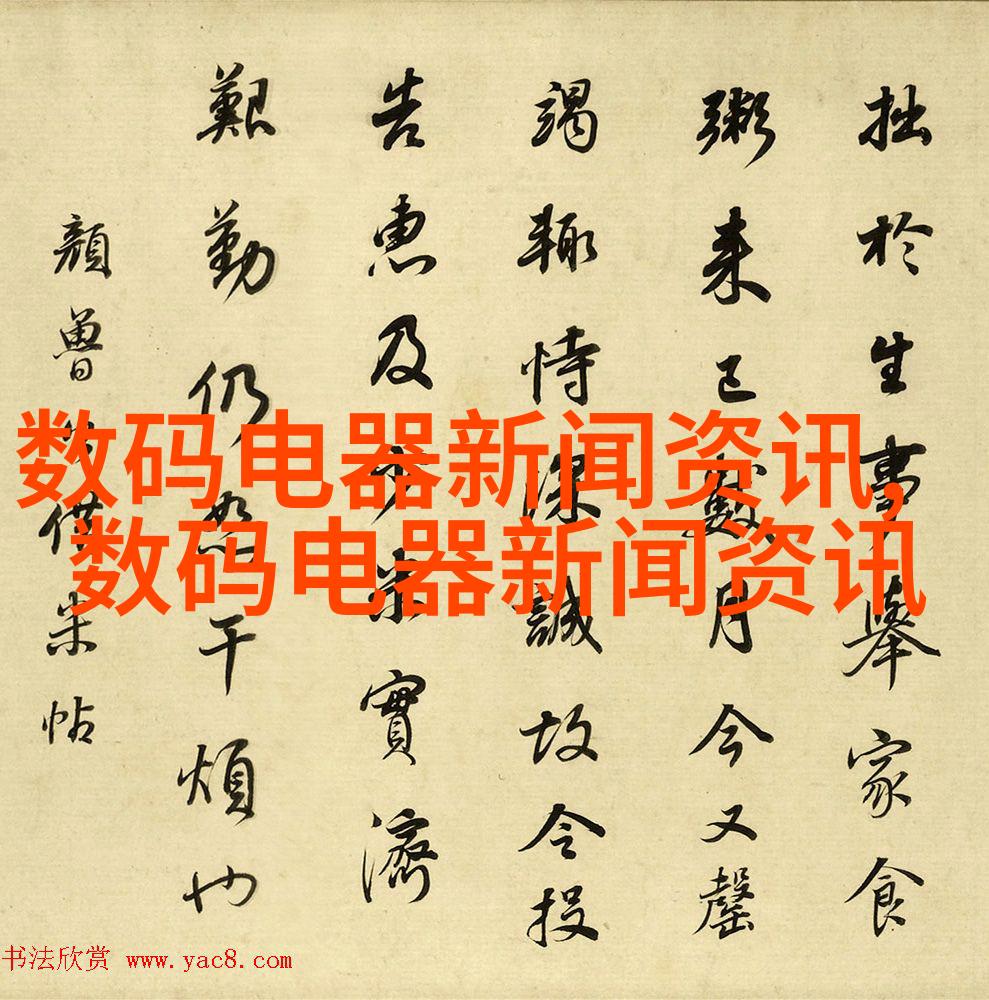 拙於生事舉家食
粥来已數月今又罄
竭輙恃深誠故令投
告惠及少米實濟
艱勤仍恕干煩也
顏魯公借米帖
数码电器新闻资讯,
数码电器新闻资讯
书法欣赏 www.yac8.com